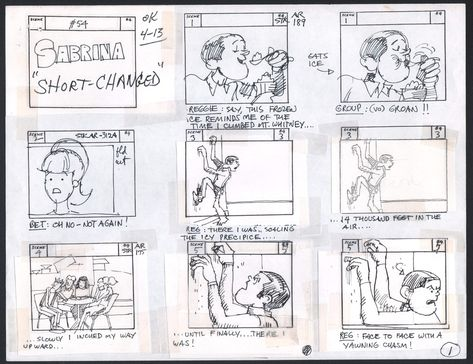 #54
OK
4-13
SABRINA
"SHORT-CHANGED"
SCENE
1
54
STK
AR
189
REGGIE: SAY, THIS FROZEN
ICE REMINDS ME OF THE
TIME I CLIMBED MT. WHITNEY...
EATS
ICE
SCENE
1
GROUP: (VO) GROAN!!
SCENE
2
STKAR-312A
BET: OH NO-NOT AGAIN!
SCENE
3
3
REG: THERE I WAS... SCALING
THE ICY PRECIPICE....
SCENE
3
3
...14 THOUSAND FEET IN THE
AIR....
SCENE
4
54
STK
AR
175
...SLOWLY I INCHED MY WAY
UPWARD....
SCENE
5
...UNTIL FINALLY....THERE I
WAS!
SCENE
REG: FACE TO FACE WITH A
YAWNING CHASM!
1